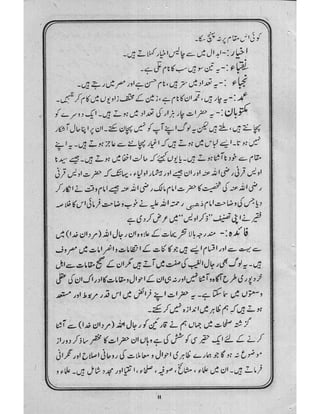 کوئی اس مقام پر نہ پہنچ سکا۔
اخیار:- ابدال میں سے چالیس اخیار کہلاتے ہیں۔
نقباء:- یہ تین سو ہیں سب کا نام علی ہے۔
نجباء:- یہ تعداد میں ستر ہیں، نام حسن ہے اور مصر میں رہتے ہیں۔
عمد:- یہ چار ہیں، محمد ان کا نام ہے، زمین کے مختلف زاویوں میں کام کرتے ہیں۔
مکتوبان:- یہ حضرات چار ہزار کی تعداد میں ہوتے ہیں۔ ایک دوسرے کو
پہچانتے ہیں، ملتے ہیں لیکن یہ لوگ اپنے آپ کو نہیں پہچان سکتے۔ ان پر اپنا حال آشکار
نہیں ہوتا۔ ایسے لباس میں ہوتے ہیں کہ اغیار پہچاننے سے عاجز ہوتے ہیں۔ یہ اپنے
مقام سے خود نا آشنا ہوتے ہیں۔ یا یوں کہئے کہ حالت اخفا میں ہوتے ہیں۔ جیسے سیدنا
اویس قرنی رضی اللہ عنہ اور ان جیسے اور بیشمار اولیاء، یہانتک کہ حضرت اویس قرنی
رضی اللہ عنہ کی شخصیت کا حضرت امام مالک رضی اللہ عنہ جیسے امام وقت نے انکار کر
دیا جس کی وضاحت امام ذھبی رحمتہ اللہ علیہ نے خوب وضاحت فرمائی اس کا خلاصہ
فقیر نے اپنی تصنیف "ذکر اویس" میں عرض کر دی ہے
فائدہ:- مندرجہ بالا تشریحات کے علاوہ ان رجال اللہ (مردان خدا) میں
بہت سے اور اقسام ایسے ہیں جو کائنات کے انتظامات و انصرامات میں مصروف
ہیں۔ یہ لوگ بھی رجال الغیب کی صفت میں آتے ہیں مگر ان کے صحیح مقامات سے اہل
خرد پوری طرح آگاہ و آشنا نہیں اور نہ ہی ان کے احوال و مقامات کا ادراک ان کی عقلی
وسعتوں میں آ سکتا ہے۔ یہ حضرات اپنے فرائض میں اس قدر مربوط اور مستعد
ہوتے ہیں کہ ہم ظاہر میں اندازہ نہیں کر سکتے۔
گزشتہ صفحات میں جہاں ہم نے قارئین کو رجال اللہ (مردان خدا) سے آشنا
کرنے کے لئے ایک حقیر سی کوشش کی ہے وہاں ان حضرات کا مختصر سا ذکر دور از
موضوع نہ ہو گا جو ہمارے ظاہری احوال و معاملات کی روحانی اصلاح اور نگرانی
فرماتے ہیں۔ ان میں علماء، مشائخ، صوفیہ، صلحاء، اتقیا اور مجدد شامل ہیں۔ علماء و